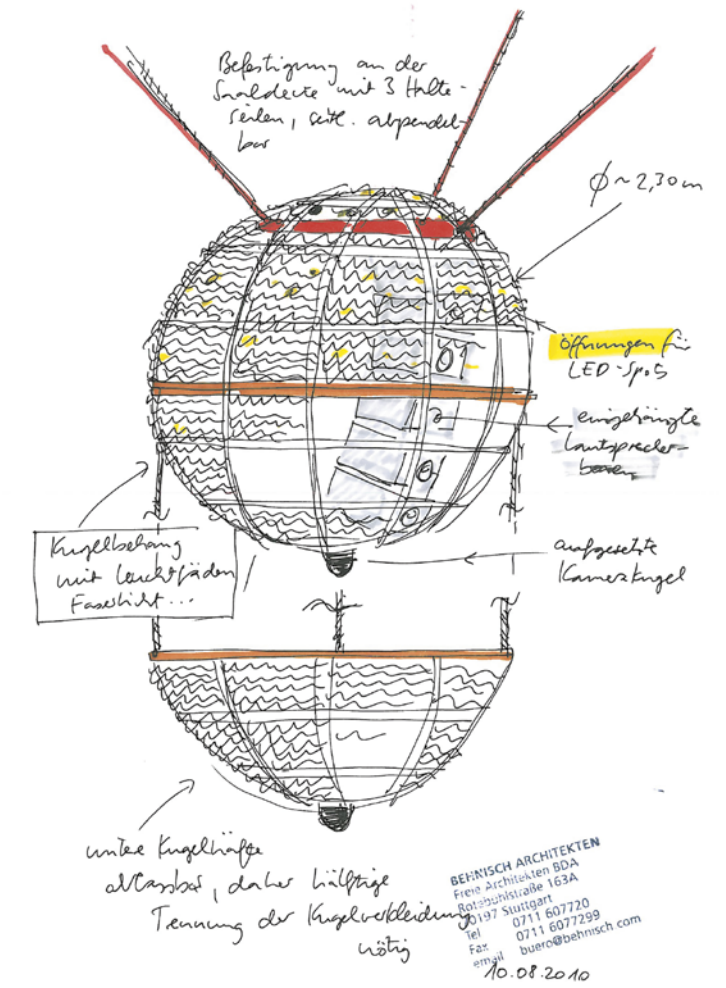 Befestigung an der
Saaldecke mit 3 Halte-
seilen, seitl. abpendel-
bar
Ø ~ 2,30 m
Öffnungen für
LED-Spots
eingehängte
Lautsprecher-
boxen
aufgesetzte
Kamerakugel
Kugelbehang
mit Leuchtfäden
Faserlicht...
untere Kugelhälfte
ablassbar, daher hälftige
Trennung der Kugelverkleidung
nötig
BEHNISCH ARCHITEKTEN
Freie Architekten BDA
Rotebühlstraße 163A
70197 Stuttgart
Tel 0711 607720
Fax 0711 6077299
email buero@behnisch.com
10.08.2010